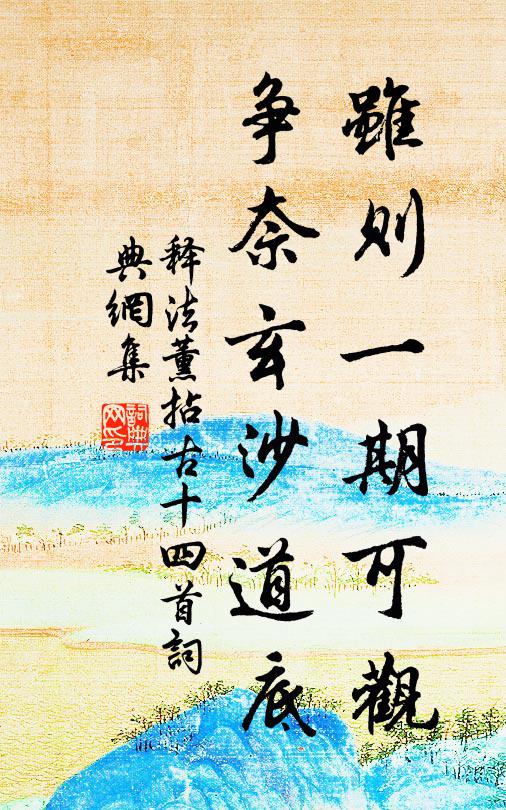 雖則一期可觀
爭奈玄沙道底
释法薰拈古十四首詞
典網集
詞典網印